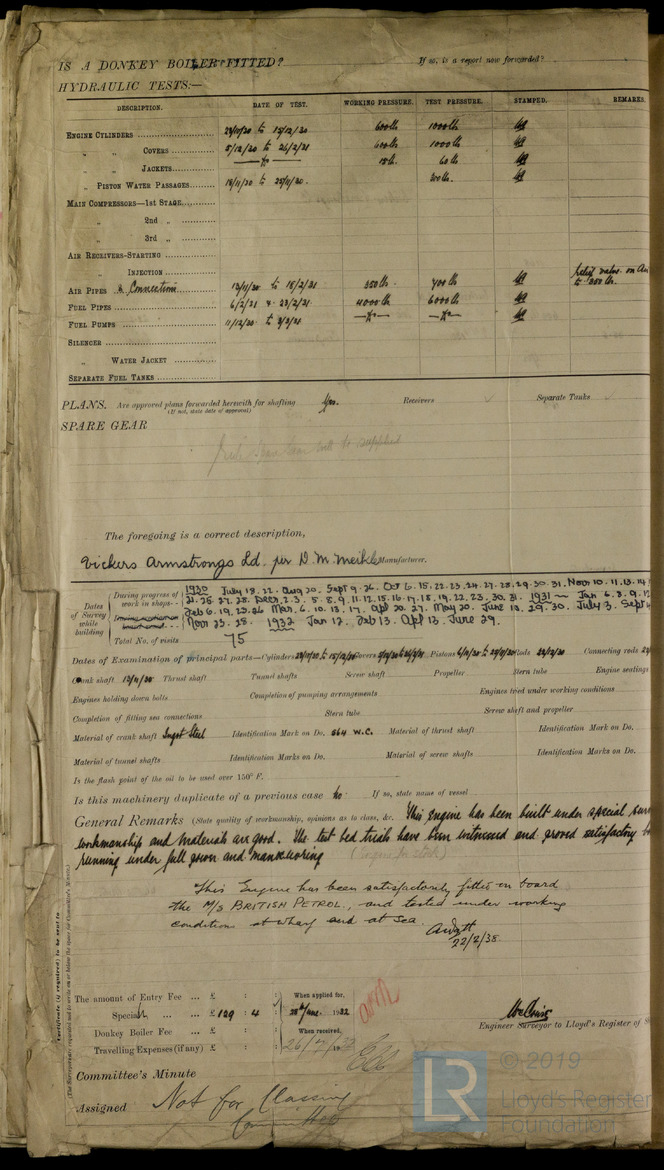 IS A DONKEY BOILER FITTED? If so, is a report now forwarded?
HYDRAULIC TESTS:—
DESCRIPTION. DATE OF TEST. WORKING PRESSURE. TEST PRESSURE. STAMPED. REMARKS.
ENGINE CYLINDERS 600 lb 1000 lb
„ „ COVERS 5/12/30 to 26/2/31 600 lb 1000 lb
„ „ JACKETS —do— 15 lb. 60 lb
„ PISTON WATER PASSAGES
MAIN COMPRESSORS—1st STAGE
„ 2nd „
„ 3rd „
AIR RECEIVERS—STARTING
„ INJECTION
AIR PIPES & Connections 350 lb 700 lb relief valve on Air
FUEL PIPES 4000 lb 6000 lb to 300 lb.
FUEL PUMPS —do— —do—
SILENCER
„ WATER JACKET
SEPARATE FUEL TANKS
PLANS. Are approved plans forwarded herewith for shafting Yes. Receivers Separate Tanks
(If not, state date of approval)
SPARE GEAR
The foregoing is a correct description,
Vickers Armstrongs Ld. per D. M. Meikle Manufacturer.
Dates of Survey while building
During progress of work in shops - - 1930 July 18. 22. Aug 20. Sept 9. 26. Oct 6. 15. 22. 23. 24. 27. 28. 29. 30. 31. Nov 10. 11. 13. 14
21. 25. 27. 28. Decr. 2. 3. 5. 8. 9. 11. 12. 15. 16. 17. 18. 19. 22. 23. 30. 31. 1931 — Jan 6. 8. 9. 12
Feb 6. 19. 23. 26 Mar. 6. 10. 13. 17. Apl 20. 27. May 20. June 18. 29. 30. July 3. Sept
Nov 23. 25. 1932 Jan 12. Feb 13. Apl 13. June 29.
Total No. of visits 75
Dates of Examination of principal parts—Cylinders Covers Pistons Rods 22/12/30 Connecting rods
Crank shaft Thrust shaft Tunnel shafts Screw shaft Propeller Stern tube Engine seatings
Engines holding down bolts Completion of pumping arrangements Engines tried under working conditions
Completion of fitting sea connections Stern tube Screw shaft and propeller
Material of crank shaft Ingot Steel Identification Mark on Do. 564 W.C. Material of thrust shaft Identification Mark on Do.
Material of tunnel shafts Identification Marks on Do. Material of screw shafts Identification Marks on Do.
Is the flash point of the oil to be used over 150° F.
Is this machinery duplicate of a previous case No If so, state name of vessel
General Remarks (State quality of workmanship, opinions as to class, &c. This engine has been built under special sur
workmanship and materials are good. The test bed trials have been witnessed and proved satisfactory b
running under full power and manoeuvring (Engine for stock)
This Engine has been satisfactorily fitted on board
the M/S BRITISH PETROL., and tested under working
conditions at wharf and at sea.
22/2/38.
Certificate (if required) to be sent to
(The Surveyors are requested not to write on or below the space for Committee's Minute.)
The amount of Entry Fee ... £ : :
Special ... ... £ 129 : 4 :
Donkey Boiler Fee ... £ : :
Travelling Expenses (if any) £ : :
When applied for,
1932
When received,
26/7/32
Engineer Surveyor to Lloyd's Register of S
Committee's Minute
Assigned Not for Classing
Committee
© 2019
LR
Lloyd's Register
Foundation